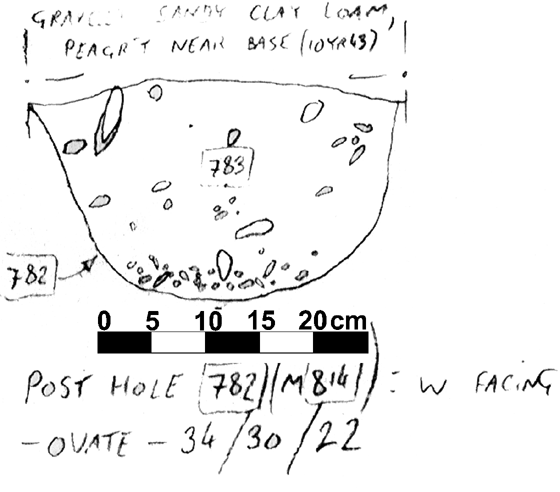 GRAVELLY SANDY CLAY LOAM,
PEAGRIT NEAR BASE (10YR43)
783
782
0 5 10 15 20 cm
POST HOLE [782] (M 814) : W FACING
- OVATE - 34/30/22